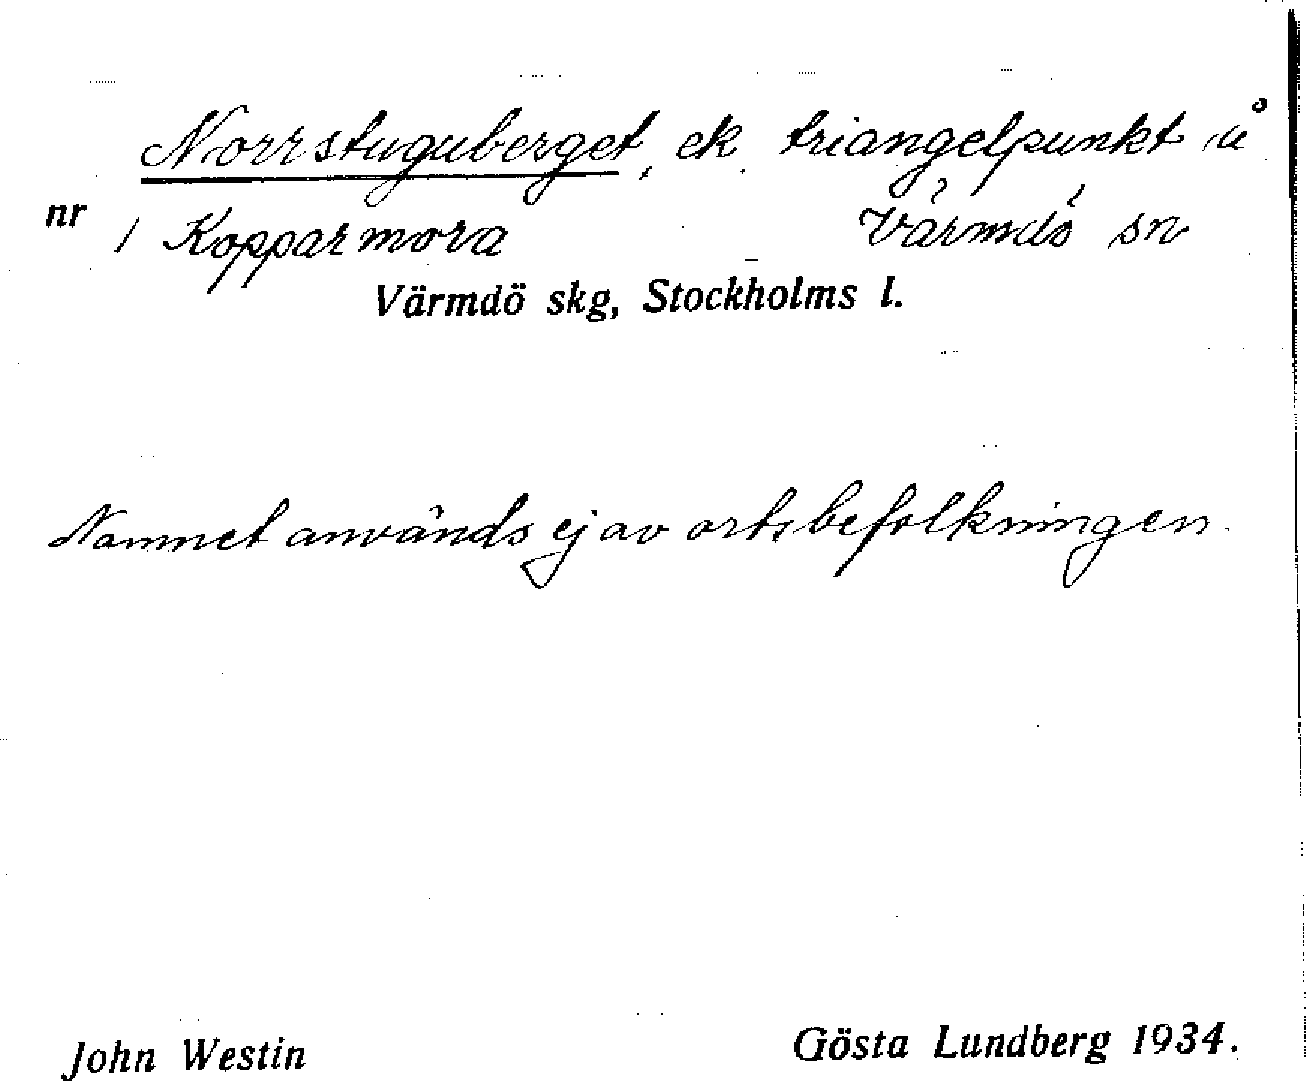 Norrstuguberget, ek. triangelpunkt å
nr 1 Kopparmora Värmdö sn
Värmdö skg, Stockholms l.
Namnet används ej av ortsbefolkningen.
John Westin Gösta Lundberg 1934.